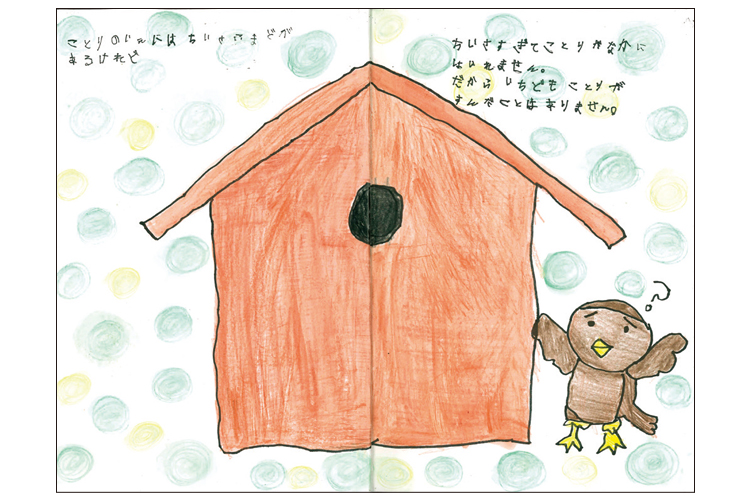 ことりのいえには ちいさなまどが
あるけれど
ちいさすぎてことりがなかに
はいれません。
だから いちども ことりが
すんだことはありません。
?